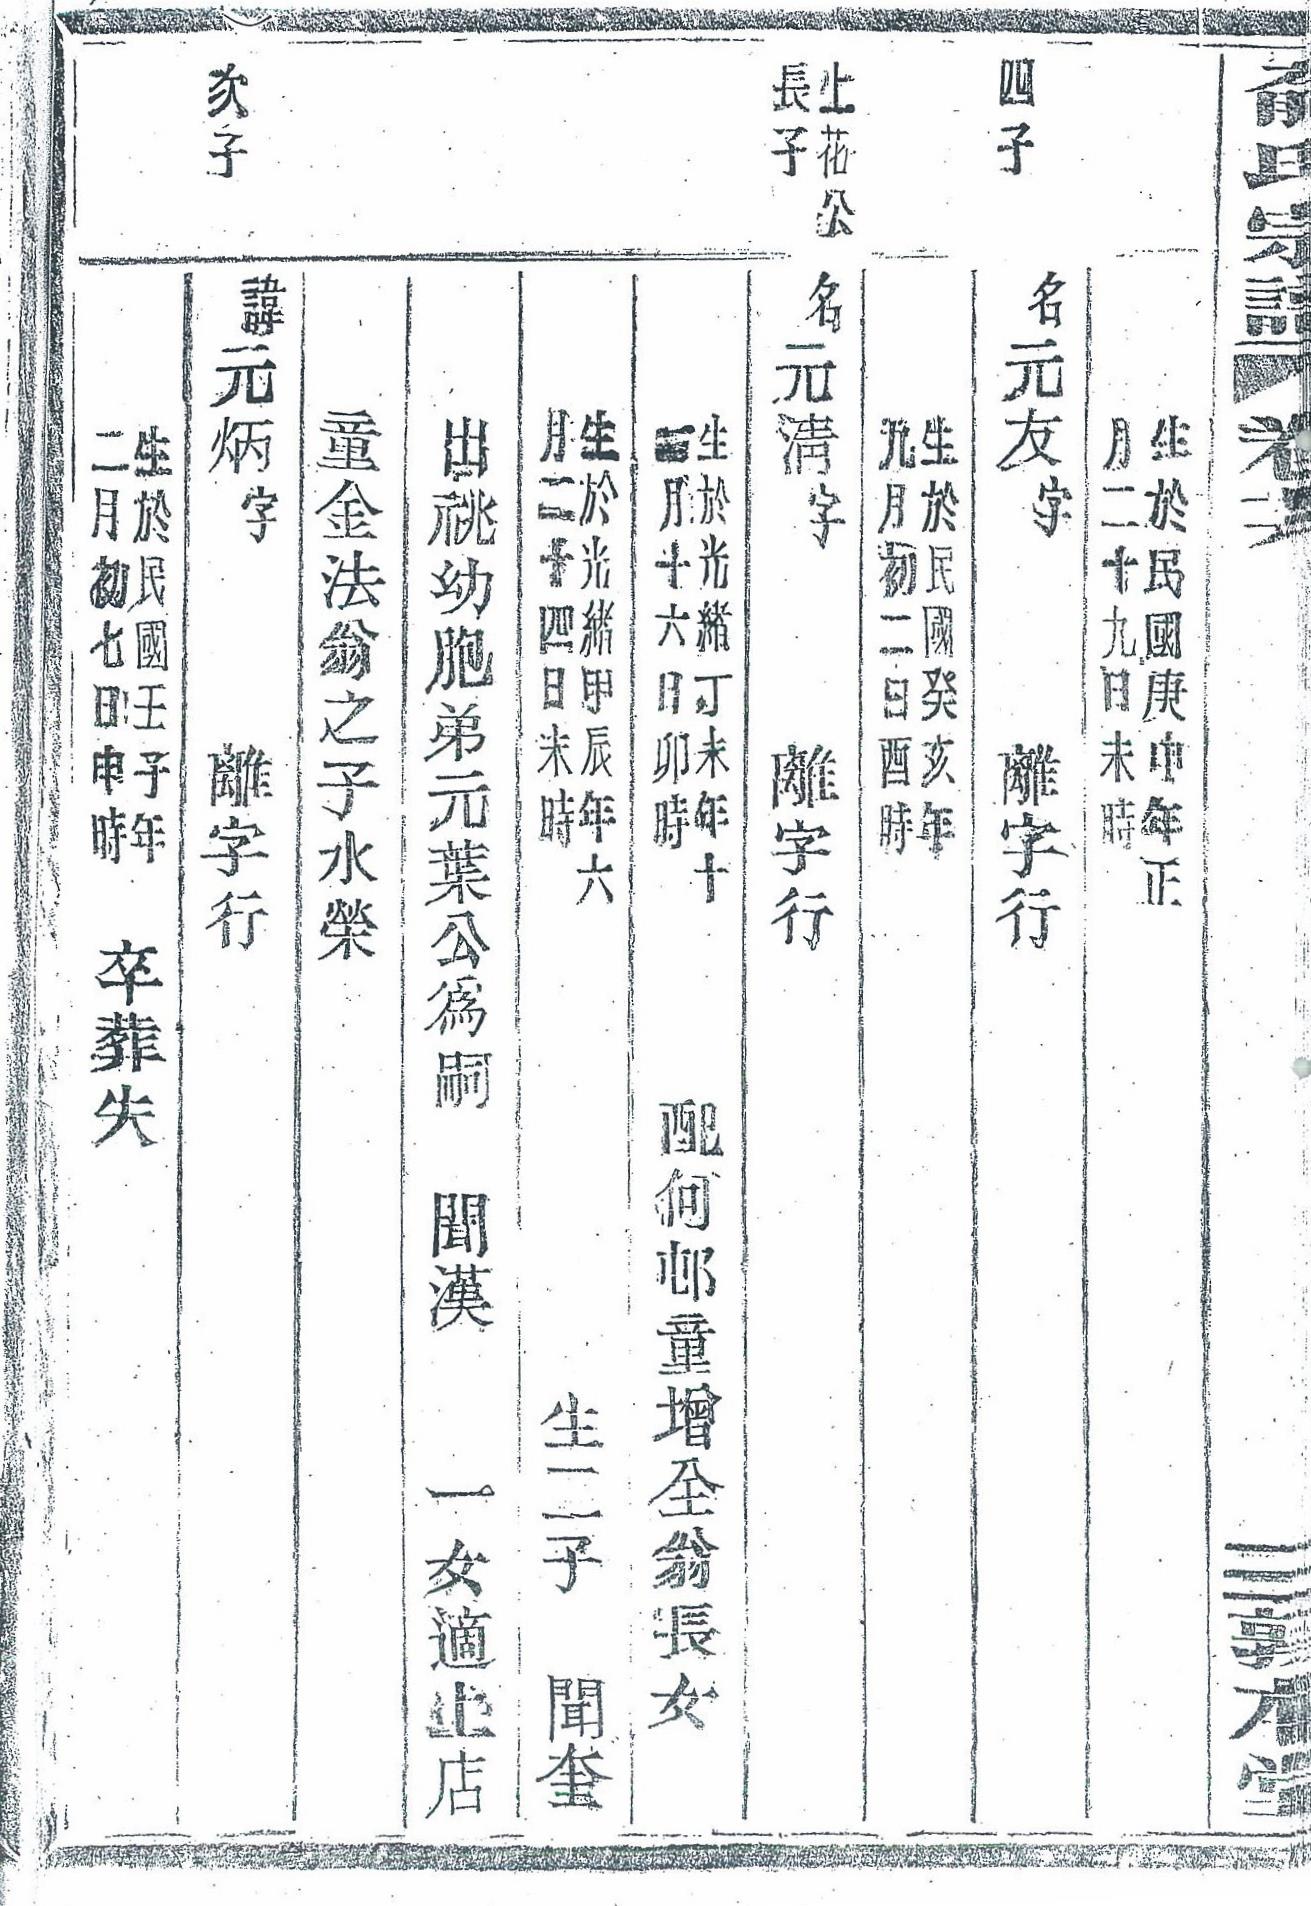 俞氏宗譜 卷 三 敦本堂
生於民國庚申年正
月二十九日未時
四子
名元友字 離字行
生於民國癸亥年
九月初二日酉時
止花公
長子
名元淸字 離字行
生於光緒丁未年十
月十六日卯時
配何邨童增全翁長女
生於光緒甲辰年六
月二十四日未時
生二子 聞奎
出祧幼胞弟元葉公爲嗣 聞漢 一女適止店
童金法翁之子水榮
次子
諱元炳字 離字行
生於民國壬子年
二月初七日申時
卒葬失